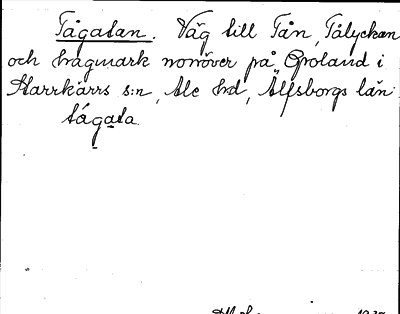 Tågatan. Väg till Tån, Tålyckan
och hagmark norröver på Groland i
Starrkärrs s:n, Ale hd, Älfsborgs län
tágata